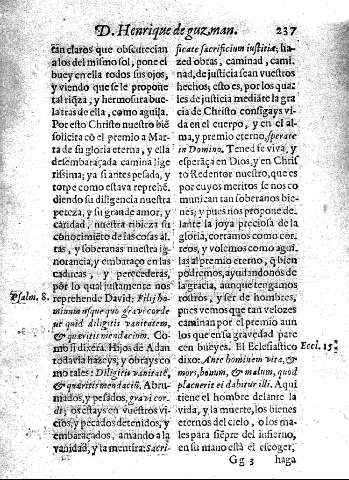 D. Henrique de guzman. 237
tan claros que obscurecian
a los del mismo sol, pone el
buey en ella todos sus ojos,
y viendo que se le propone
tal riq̃za, y hermosura bue
la tras de ella, como aguila.
Por esto Christo nuestro biẽ
solicita cõ el premio a Mar-
ta de su gloria eterna, y ella
desembaraçada camina lige
rissima; ya si antes pesada, y
torpe como estava reprehẽ
diendo su diligencia nuestra
pereza, y su grande amor, y
caridad, nuestra tibieza su
conocimiẽto de las cosas al-
tas, y soberanas nuestra ig-
norancia, y embaraço en las
caducas, y perecederas,
por lo qual justamente nos
Psalm. 8. reprehende David; Filij ho-
minum usque quo gravi corde
ut quid diligitis vanitatem,
& quæritis mendacium. Co-
mo si dixera. Hijos de Adan
todavia haze ys, y obrays co
mo tales: Diligitis vanitatẽ,
& quæritis mendaciũ. Abru-
mados, y pesados, gravi cor-
di; os estays en vuestros vi-
cios, y pecados detenidos, y
embaraçados, amando a la
vanidad, y la mentira: Sacri-
ficate sacrificium iustitiæ, ha-
zed obras, caminad, cami-
nad, de justicia sean vuestros
hechos; esto es, por los qua-
les de justicia mediãte la gra
cia de Christo consigays vi-
da en el cuerpo, y en el al-
ma, y premio eterno, sperate
in Domino. Tened fe viva, y
esperãça en Dios, y en Chris
to Redentor nuestro, que es
por cuyos meritos se nos co
munican tan soberanos bie-
nes; y pues nos propone de-
lante la joya preciosa de la
gloria, corramos como cor-
reos, y volemos como agui-
las al premio eterno, q̃ bien
podremos, ayudandonos de
la gracia, aunque tengamos
rostros, y ser de hombres,
pues vemos que tan velozes
caminan por el premio aun
los que en su gravedad pare
cen bueyes. El Eclesiastico Eccl. 15.
dixo: Ante hominem vita, &
mors, bonum, & malum, quod
placuerit ei dabitur illi. Aqui
tiene el hombre delante la
vida, y la muerte, los bienes
eternos del cielo, o los ma-
les para siẽpre del infierno,
en su mano està el escoger,
Gg 3 haga